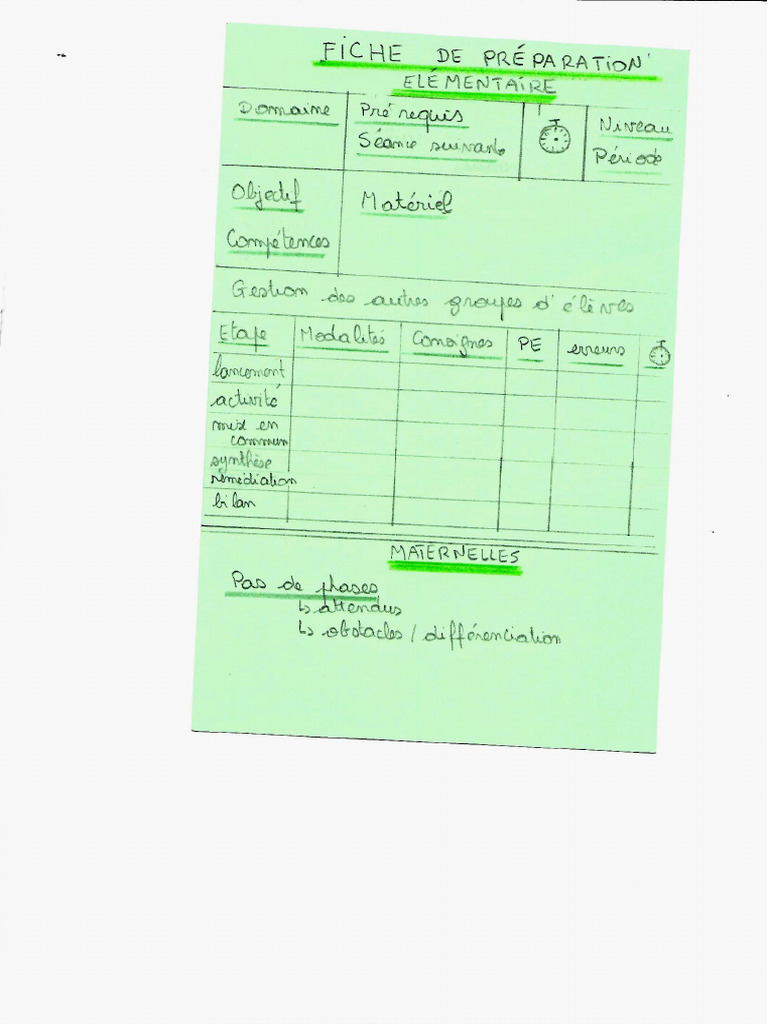 FICHE DE PRÉPARATION
ELÉMENTAIRE
Domaine
Prérequis
Séance suivante
Niveau
Période
Objectif
Compétences
Matériel
Gestion des autres groupes d'élèves
Etape Modalités Consignes PE erreurs
lancement
activité
mise en
commun
synthèse
remédiation
bilan
MATERNELLES
Pas de phases
↳ attendus
↳ obstacles / différenciation